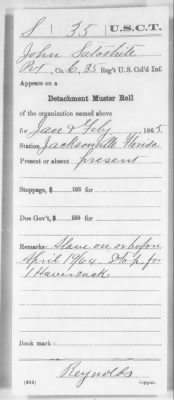 S 35 U.S.C.T.
John Satchite
Pvt, Co. C, 35 Reg't U.S. Col'd Inf.
Appears on a
Detachment Muster Roll
of the organization named above
for Jan & Feby, 1865.
Station Jacksonville Florida
Present or absent present
Stoppage, $ 100 for
Due Gov't, $ 100 for
Remarks: Slave on or before
April 19/61. Stop for
1 Haversack
Book mark:
Reynolds
Copyist.